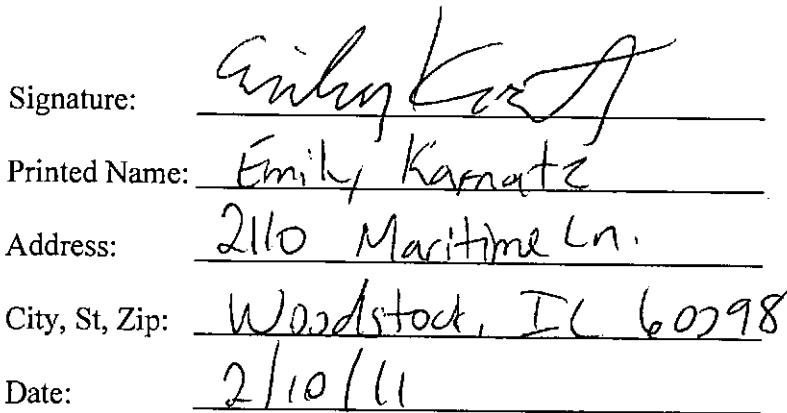 Signature: Emily Karnatz
Printed Name: Emily Karnatz
Address: 2110 Maritime Ln.
City, St, Zip: Woodstock, IL 60098
Date: 2/10/11